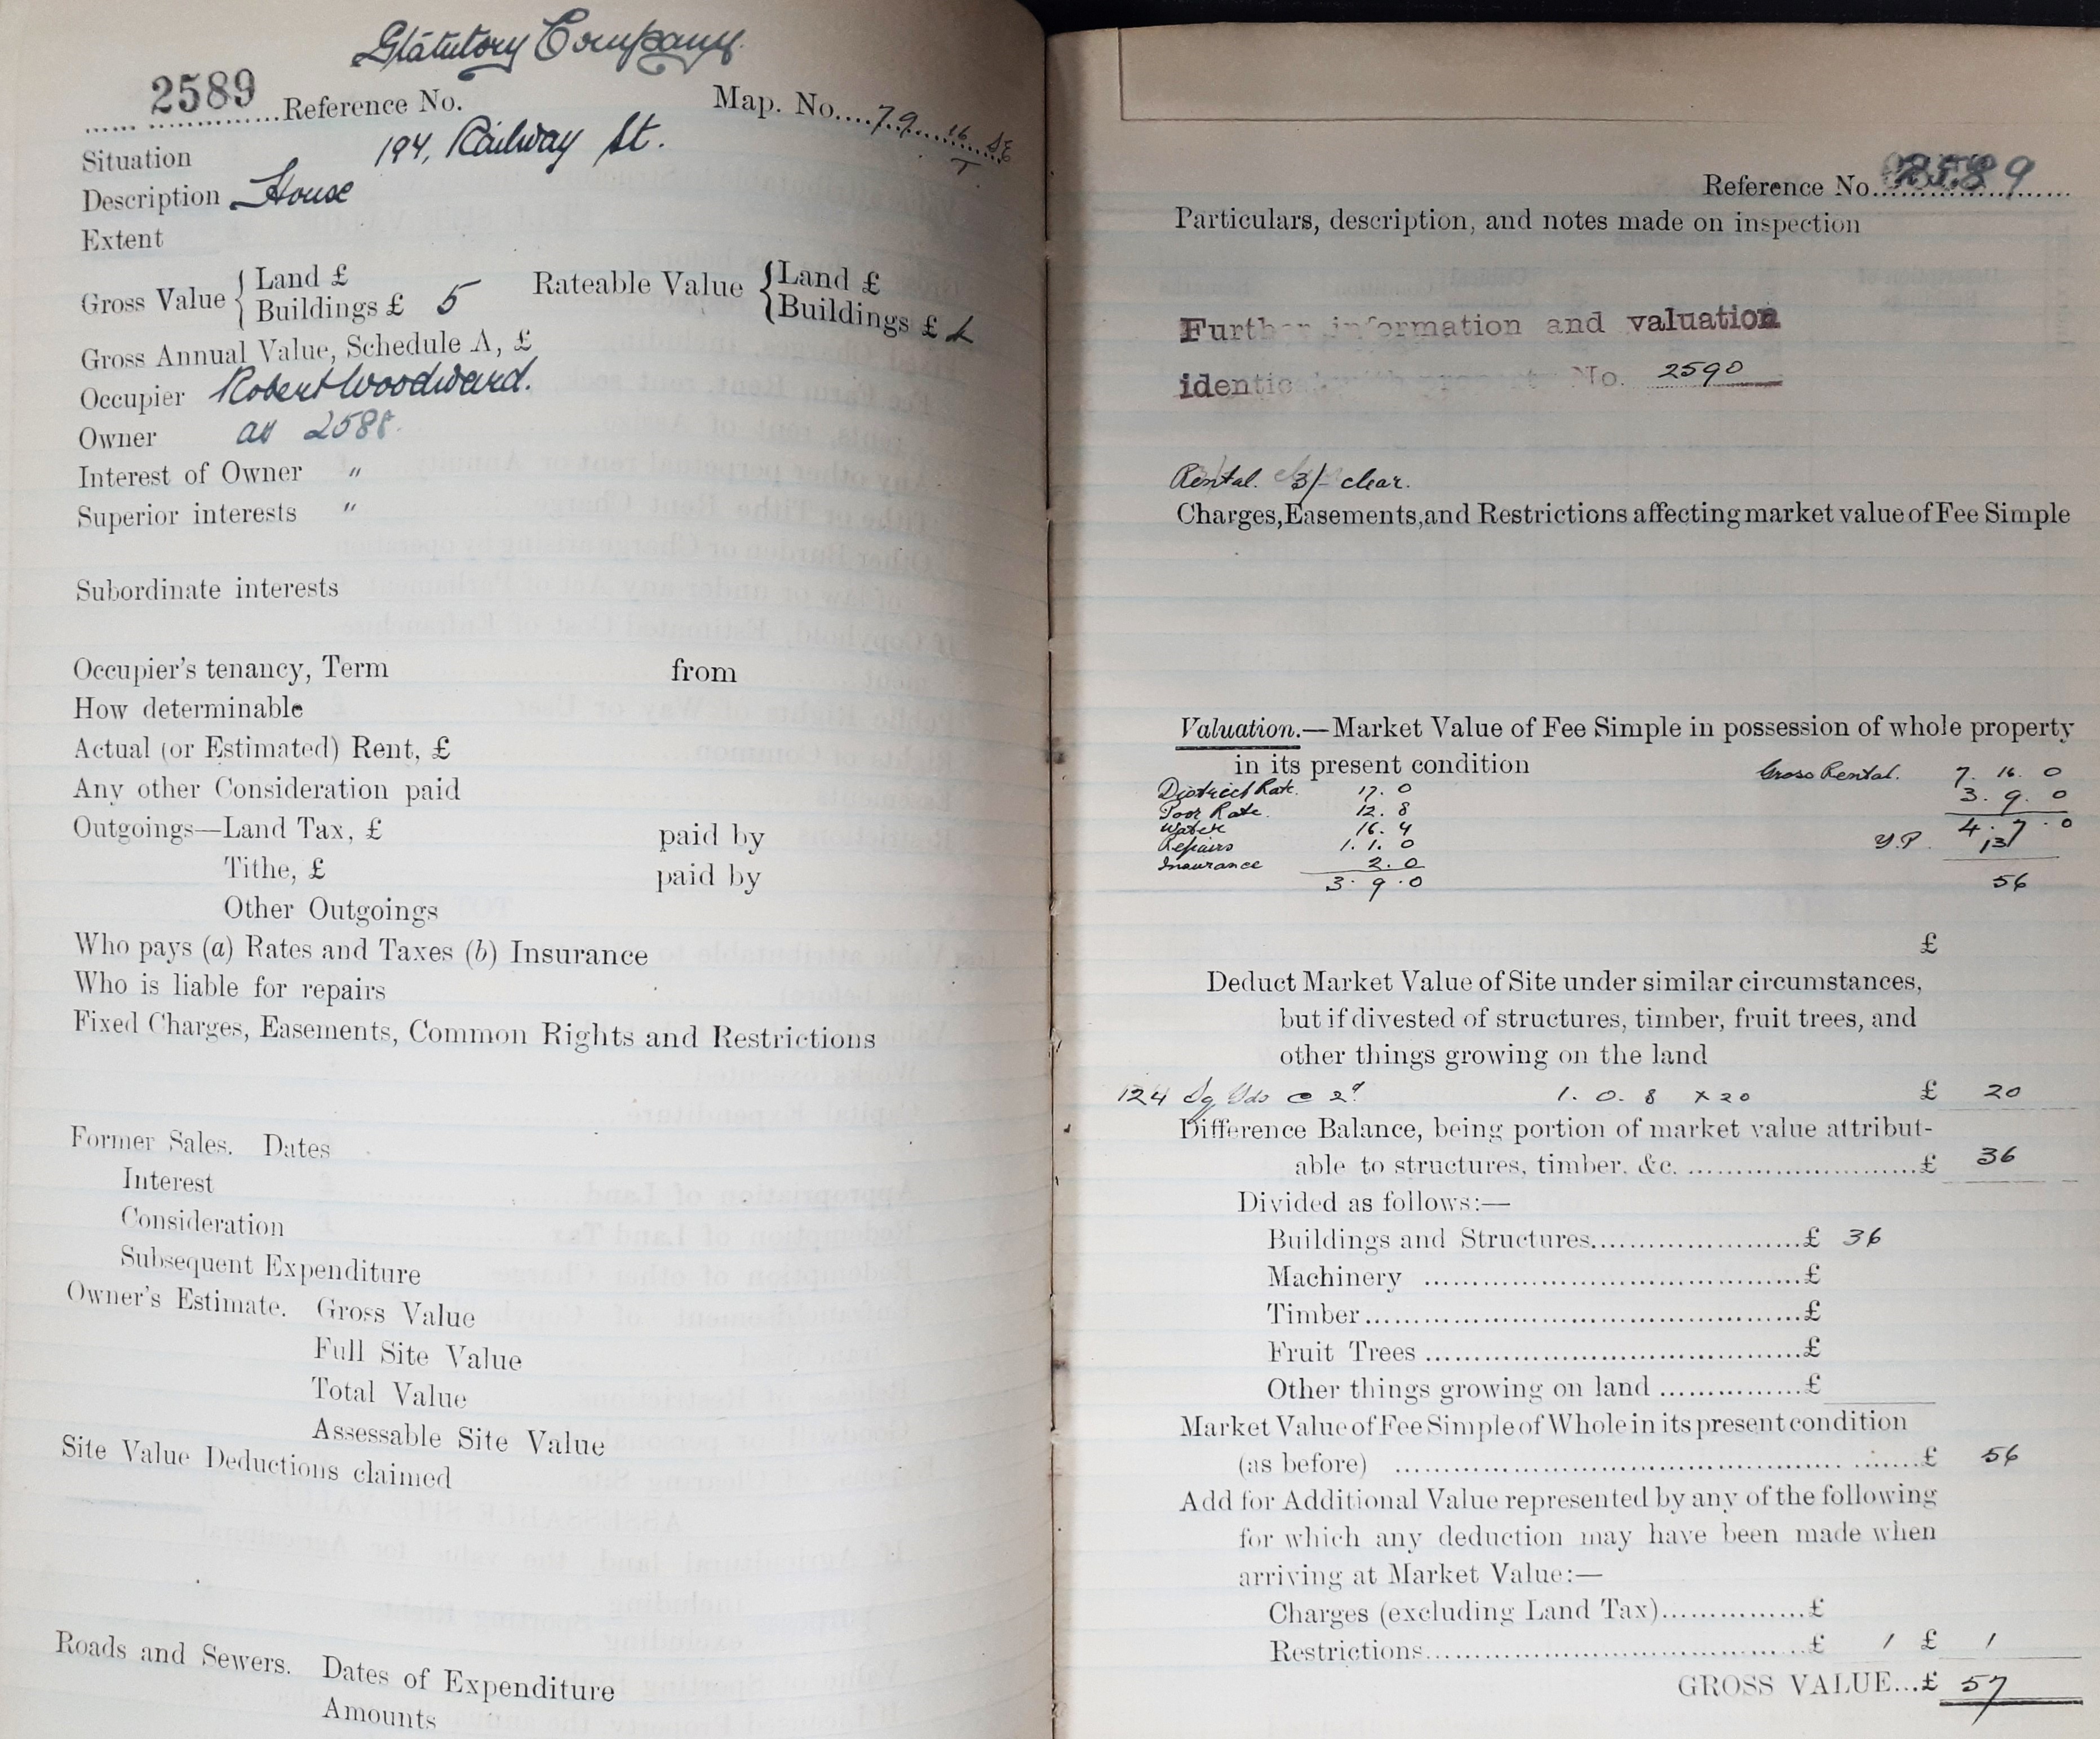 Statutory Company
2589 Reference No. Map. No. 79 16 SE
T
Situation 194, Railway St.
Description House
Extent
Gross Value { Land £ Rateable Value { Land £
Buildings £ 5 Buildings £
Gross Annual Value, Schedule A, £
Occupier Robert Woodward.
Owner as 2588.
Interest of Owner "
Superior interests "
Subordinate interests
Occupier's tenancy, Term from
How determinable
Actual (or Estimated) Rent, £
Any other Consideration paid
Outgoings—Land Tax, £ paid by
Tithe, £ paid by
Other Outgoings
Who pays (a) Rates and Taxes (b) Insurance
Who is liable for repairs
Fixed Charges, Easements, Common Rights and Restrictions
Former Sales. Dates
Interest
Consideration
Subsequent Expenditure
Owner's Estimate. Gross Value
Full Site Value
Total Value
Assessable Site Value
Site Value Deductions claimed
Roads and Sewers. Dates of Expenditure
Amounts
Reference No. 2589
Particulars, description, and notes made on inspection
Further information and valuation
identical with property No. 2590
Rental. 3/- clear.
Charges, Easements, and Restrictions affecting market value of Fee Simple
Valuation.—Market Value of Fee Simple in possession of whole property
in its present condition Gross Rental. 7. 16. 0
District Rate. 17. 0 3. 9. 0
Poor Rate. 12. 8 4. 7. 0
Water 16. 4 Y.P. 13
Repairs 1. 1. 0
Insurance 2. 0 56
3. 9. 0
£
Deduct Market Value of Site under similar circumstances,
but if divested of structures, timber, fruit trees, and
other things growing on the land
124 Sq Yds @ 2d 1. 0. 8 x 20 £ 20
Difference Balance, being portion of market value attribut-
able to structures, timber, &c. £ 36
Divided as follows:—
Buildings and Structures £ 36
Machinery £
Timber £
Fruit Trees £
Other things growing on land £
Market Value of Fee Simple of Whole in its present condition
(as before) £ 56
Add for Additional Value represented by any of the following
for which any deduction may have been made when
arriving at Market Value:—
Charges (excluding Land Tax) £
Restrictions £ 1 £ 1
GROSS VALUE...£ 57